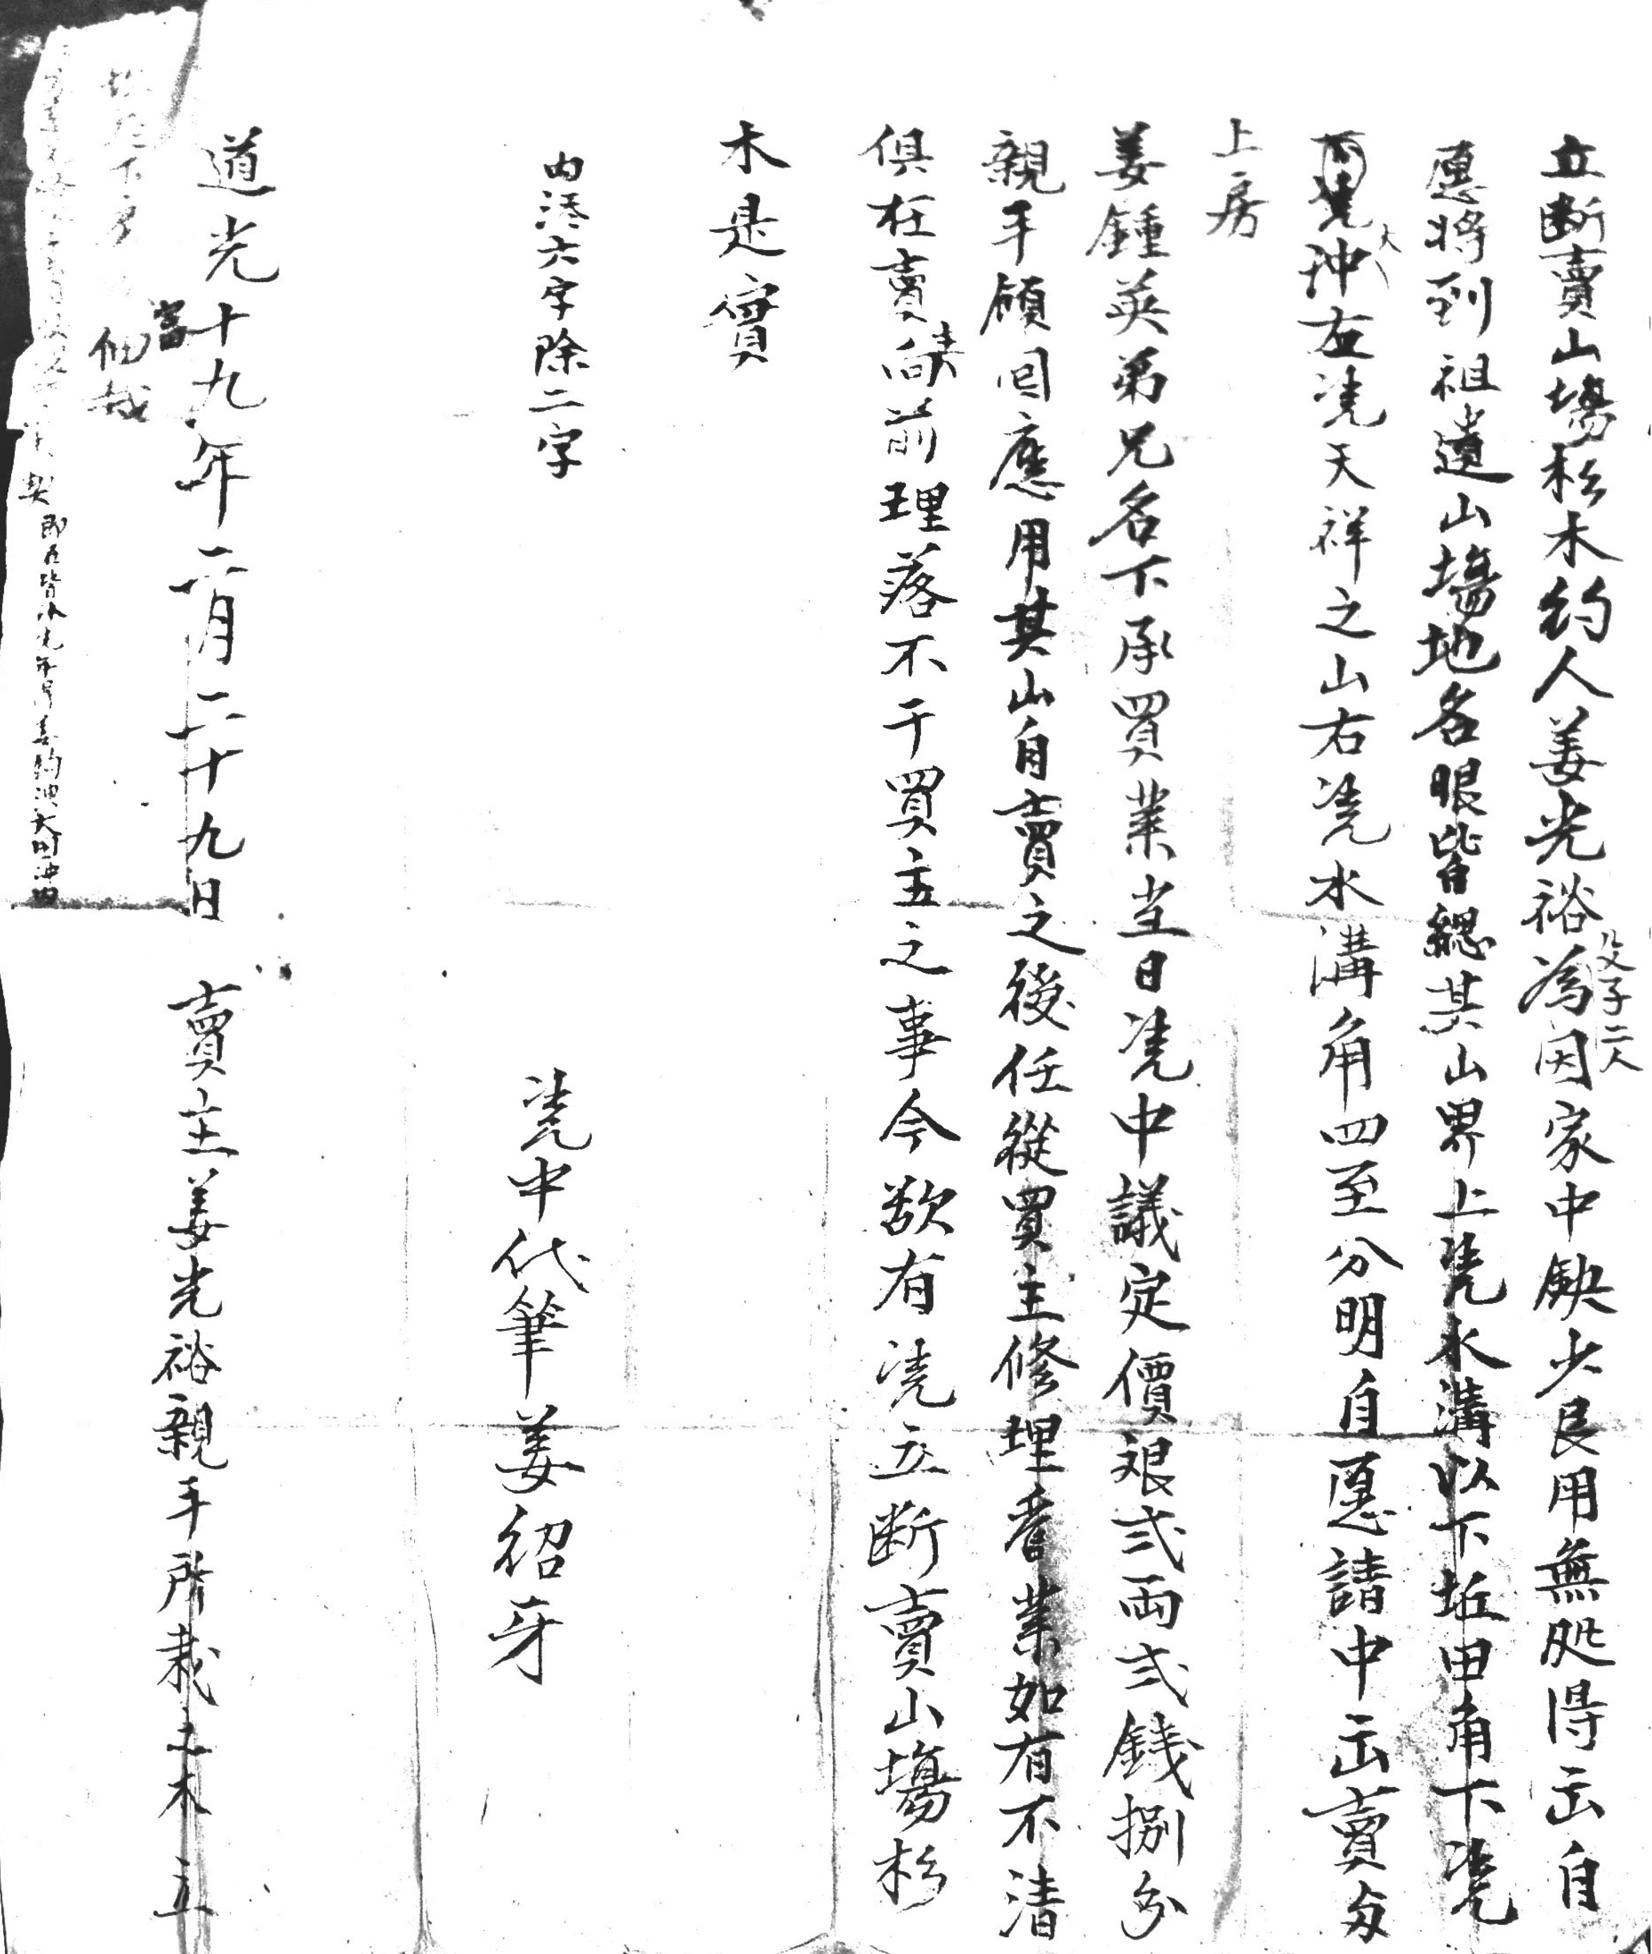 立断賣山塲杉木約人姜光裕父子二人為因家中缺少艮用無処得出自
愿将到祖遺山塲地名眼皆縂其山界上凴水溝以下坵田角下凴
大冲左凴天祥之山右凴水溝角四至分明自愿請中出賣與
上房
姜鍾英弟兄名下承買業当日凴中議定價艰弍兩弍錢捌分
親手領回應用其山自賣之後任從買主修理番業如有不清
俱在賣主向前理落不干買主之事今欲有凴立断賣山塲杉
木是實
内添六字除二字
凴中代筆姜紹牙
道光十九年二月二十九日 賣主姜光裕親手所栽之木 立